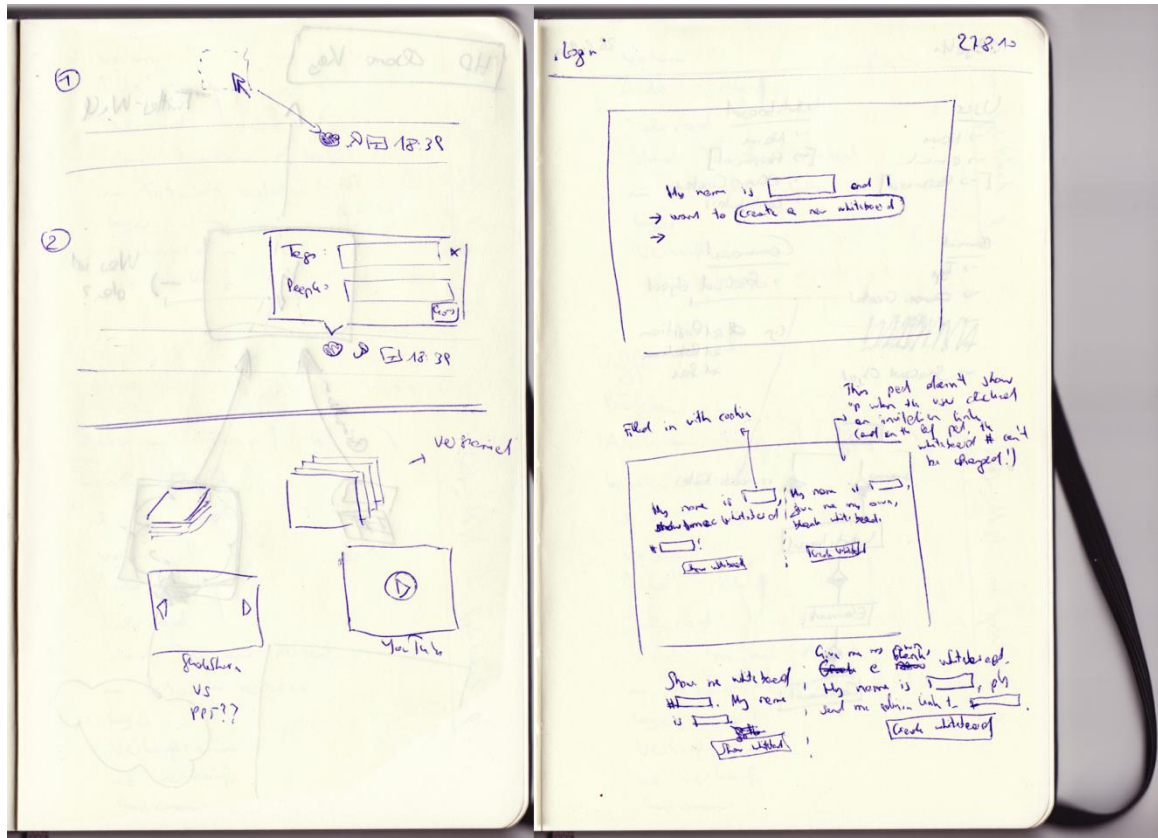 1
18:39
2
Tags:
People:
x
18:39
versioniert
SlideShare
VS
PPT??
YouTube
"Login"
27.8.10
My name is and I
→ want to create a new whiteboard
→
This part doesn't show
up when the user clicked
an invitation link
(and on the left part, the
whiteboard # can't
be changed!)
Filled in with cookie
My name is ,
whiteboard
# !
Show whiteboard
My name is ,
give me my own,
blank whiteboard.
Create whiteboard
Show me whiteboard
# . My name
is
Show whiteboard
Give me my
a whiteboard.
My name is , pls
send me admin link to .
Create whiteboard